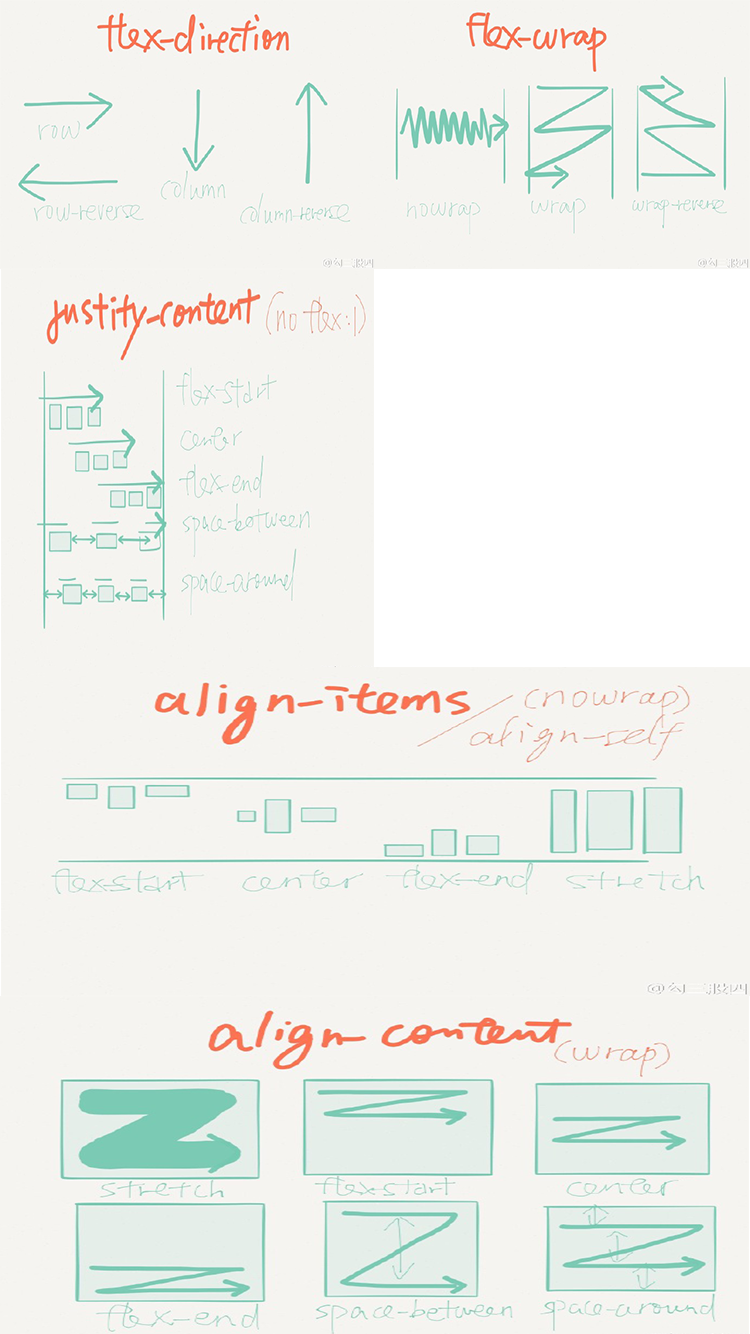 flex-direction
flex-wrap
row
row-reverse
column
column-reverse
nowrap
wrap
wrap-reverse
justity-content (no flex:1)
flex-start
center
flex-end
space-between
space-around
align-items / (nowrap)
align-self
flex-start
center
flex-end
stretch
align-content (wrap)
stretch
flex-start
center
flex-end
space-between
space-around